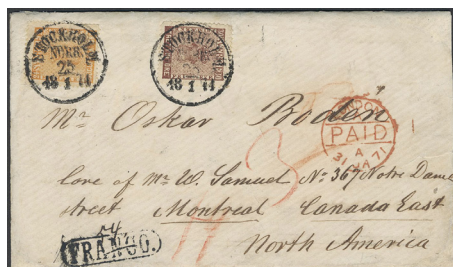 STOCKHOLM
NORR
25
1
STOCKHOLM
25
1
Mr Oskar Boden
LONDON
PAID
A
31 JA 71
3
Care of Mr W. Samuel No 367 Notre Dame
street Montreal Canada East
North America
FRANCO.